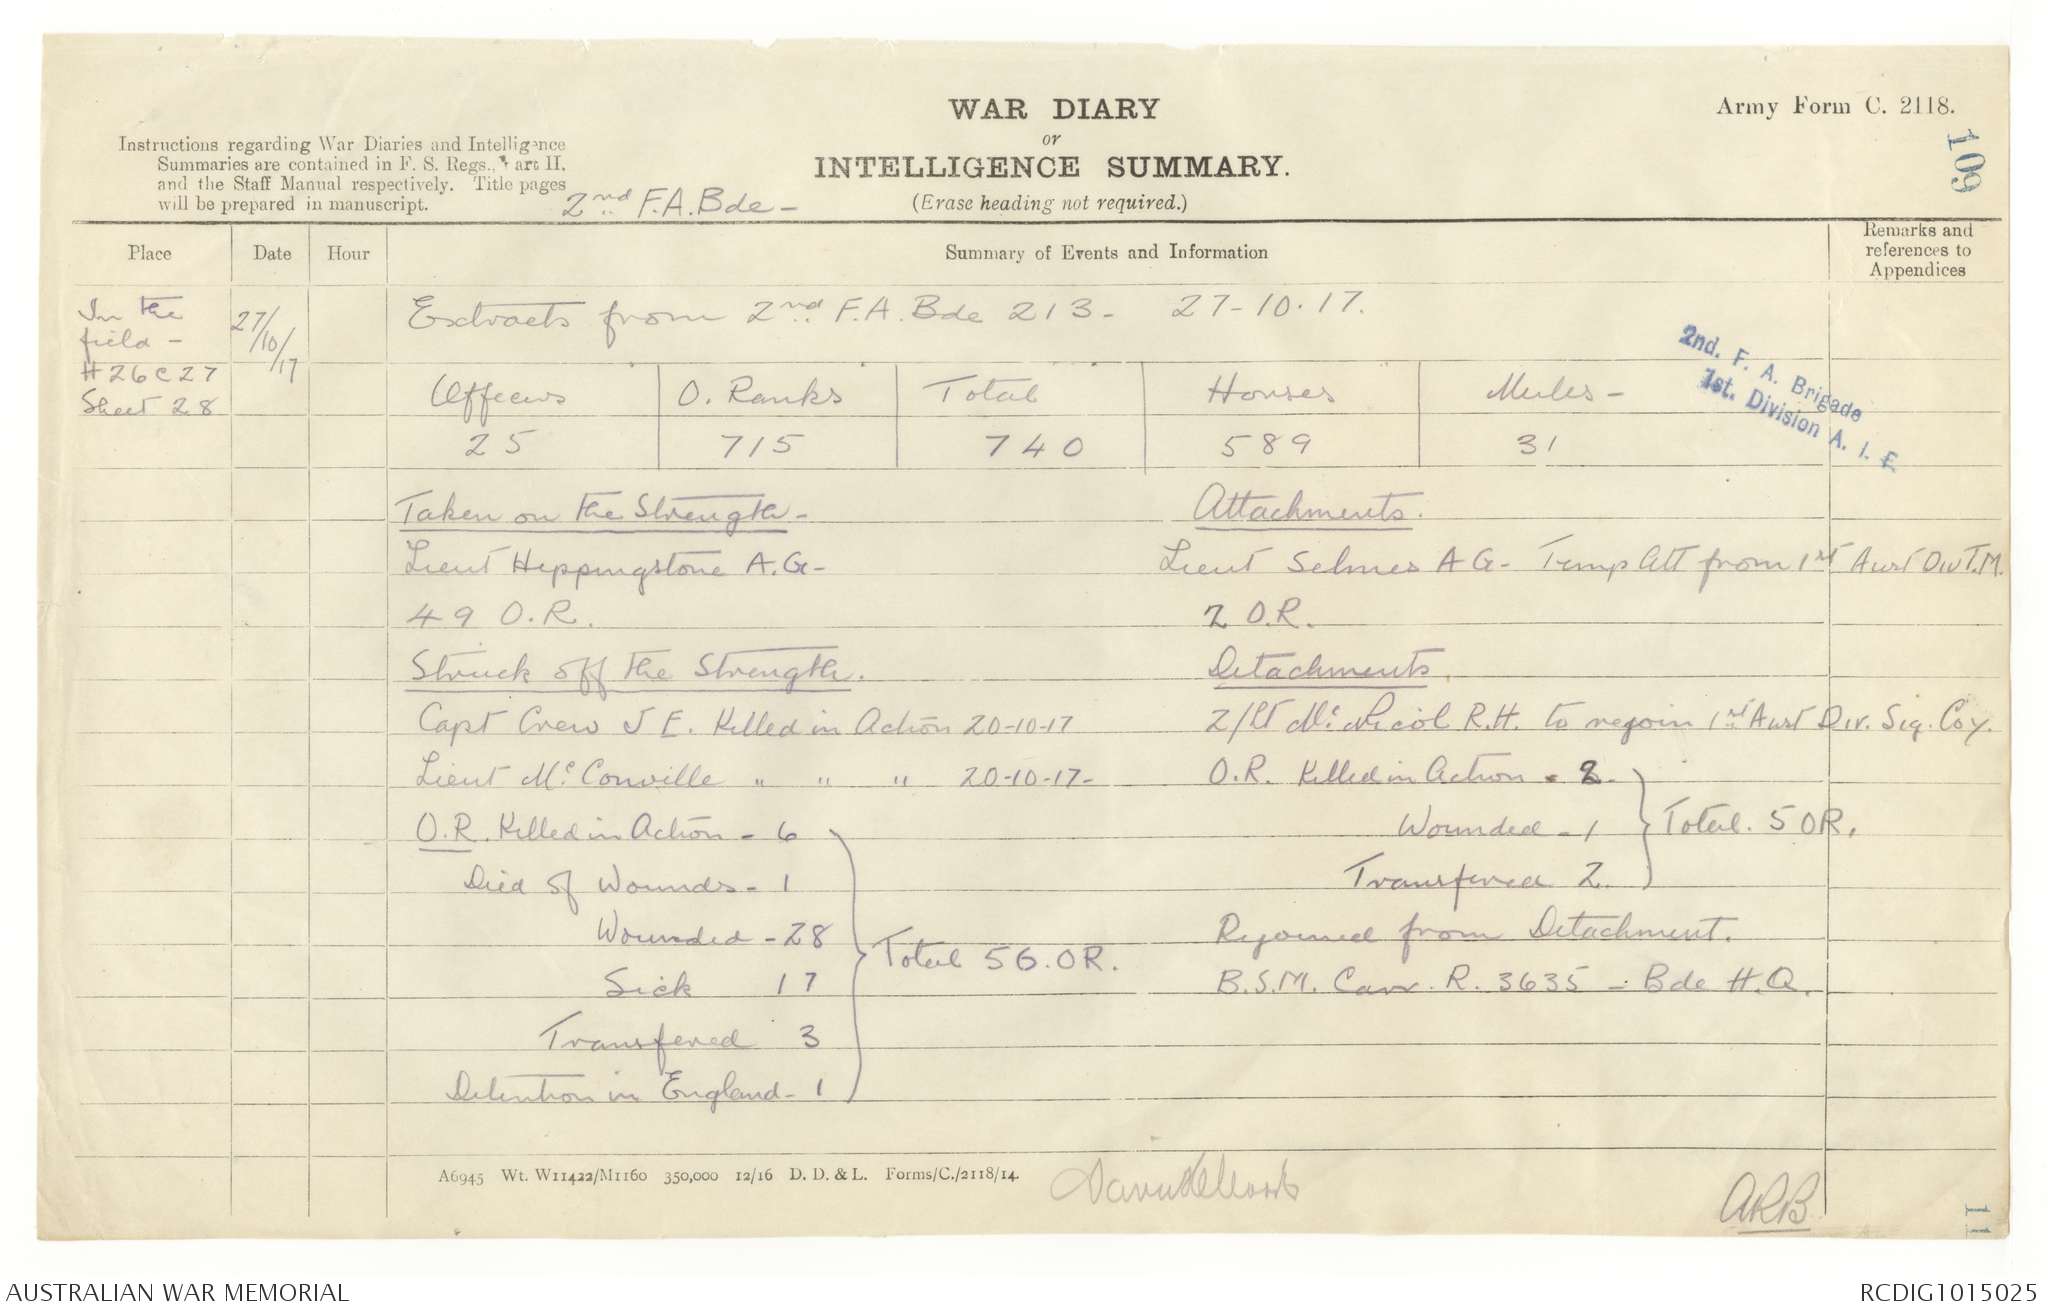 WAR DIARY
or
INTELLIGENCE SUMMARY.
(Erase heading not required.)
Army Form C. 2118.
109
Instructions regarding War Diaries and Intelligence
Summaries are contained in F. S. Regs., Part II.
and the Staff Manual respectively. Title pages
will be prepared in manuscript.
2nd F.A. Bde -
Place Date Hour Summary of Events and Information Remarks and references to Appendices
In the
field -
H26c27
Sheet 28
27/10/17
Extracts from 2nd F.A. Bde 213 - 27-10-17.
2nd. F. A. Brigade
1st. Division A. I. F.
Officers O. Ranks Total Horses Mules -
25 715 740 589 31
Taken on the Strength -
Lieut Heppingstone A.G -
49 O.R.
Struck off the Strength.
Capt Crew J E. Killed in Action 20-10-17
Lieut McConville " " " 20-10-17 -
O.R. Killed in Action - 6
Died of Wounds - 1
Wounded - 28
Sick 17
Transfered 3
Detention in England - 1
Total 56. OR.
Attachments.
Lieut Selmes A G - Temp Att from 1st Aust Div T.M.
2 O.R.
Detachments.
2/Lt McNicol R.H. to rejoin 1st Aust Div. Sig. Coy.
O.R. Killed in Action - 2 -
Wounded - 1
Transfered 2.
Total. 5 OR.
Rejoined from Detachment.
B.S.M. Carr. R. 3635 - Bde H.Q.
A6945 Wt. W11422/M1160 350,000 12/16 D. D. & L. Forms/C./2118/14.
ARB
11
AUSTRALIAN WAR MEMORIAL
RCDIG1015025